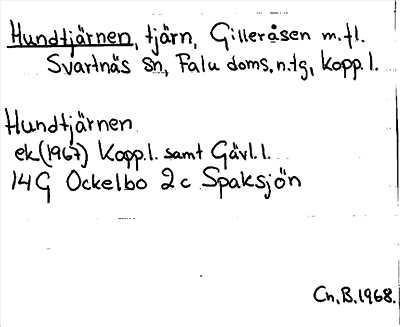 Hundtjärnen, tjärn, Gilleråsen m.fl.
Svartnäs sn, Falu doms.n.tg, Kopp. l.
Hundtjärnen
ek.(1967) Kopp.l. samt Gävl. l.
14G Ockelbo 2c Spaksjön
Cn, B. 1968.